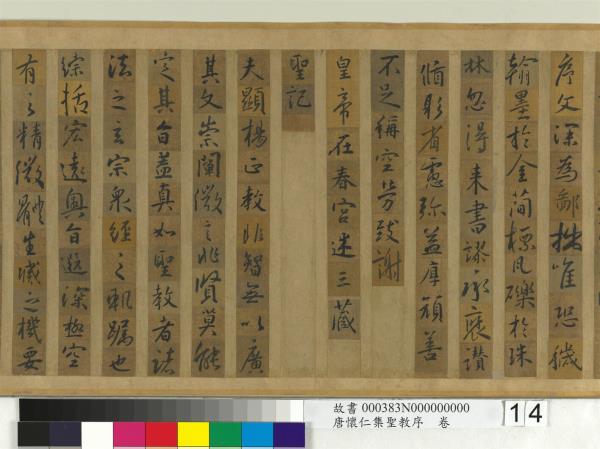 序文深為鄙拙唯恐穢
翰墨於金簡標凡礫於珠
林忽得來書謬承褒讚
循躬省慮彌益厚顏善
不足稱空勞致謝
皇帝在春宮述三藏
聖記
夫顯揚正教非智無以廣
其文崇闡微言非賢莫能
定其旨蓋真如聖教者諸
法之玄宗眾經之軌躅也
綜括宏遠奧旨遐深極空
有之精微體生滅之機要
故書 000383N000000000
唐懷仁集聖教序 卷
14